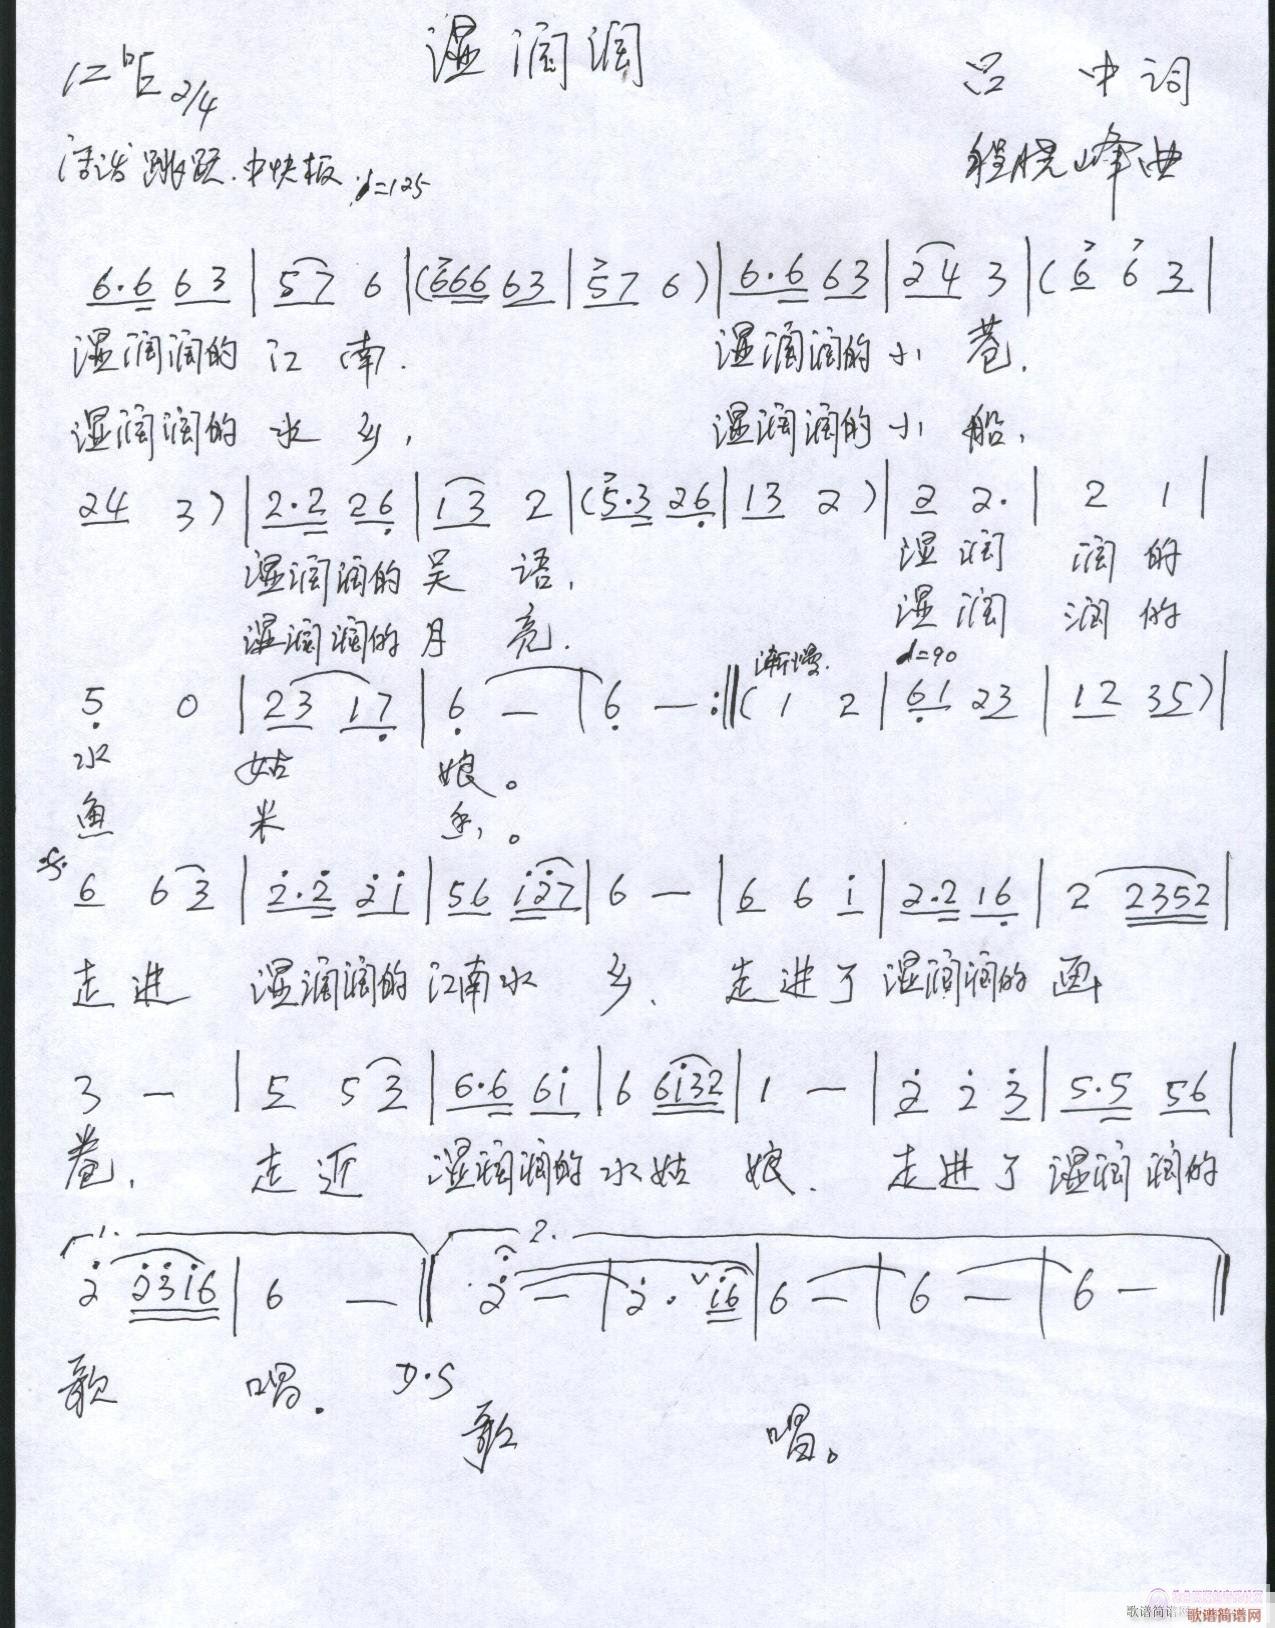 湿润润
1=♭E 2/4
吕中词
活泼 跳跃.中快板 ♩=125
程晓峰曲
6.6 6 3 | 5 7 6 | (666 63 | 57 6) | 6.6 63 | 24 3 | (6 6 3 |
湿润润的 江 南. 湿润润的 小 巷.
湿润润的 水 乡, 湿润润的 小 船,
24 3) | 2.2 26 | 13 2 | (5.3 26 | 13 2) | 2 2. | 2 1 |
湿润润的 吴 语, 湿 润 润 的
湿润润的 月 亮. 湿 润 润 的
渐慢. ♩=90
5 0 | 23 17 | 6 — | 6 — :‖ (1 2 | 61 23 | 12 35) |
水 姑 娘。
鱼 米 乡。
6 6 3 | 2.2 21 | 56 127 | 6 — | 6 6 1 | 2.2 16 | 2 2352 |
走 进 湿润润的 江南水 乡、 走 进 了 湿润润的 画
3 — | 5 5 3 | 6.6 61 | 6 6132 | 1 — | 2 2 3 | 5.5 56 |
卷, 走 近 湿润润的 水姑 娘. 走 进 了 湿润润的
1. 2.
2 2316 | 6 — ‖ 2 — | 2. 16 | 6 — | 6 — | 6 — ‖
歌 唱. D.S
歌 唱。
歌谱简谱网 歌谱简谱网